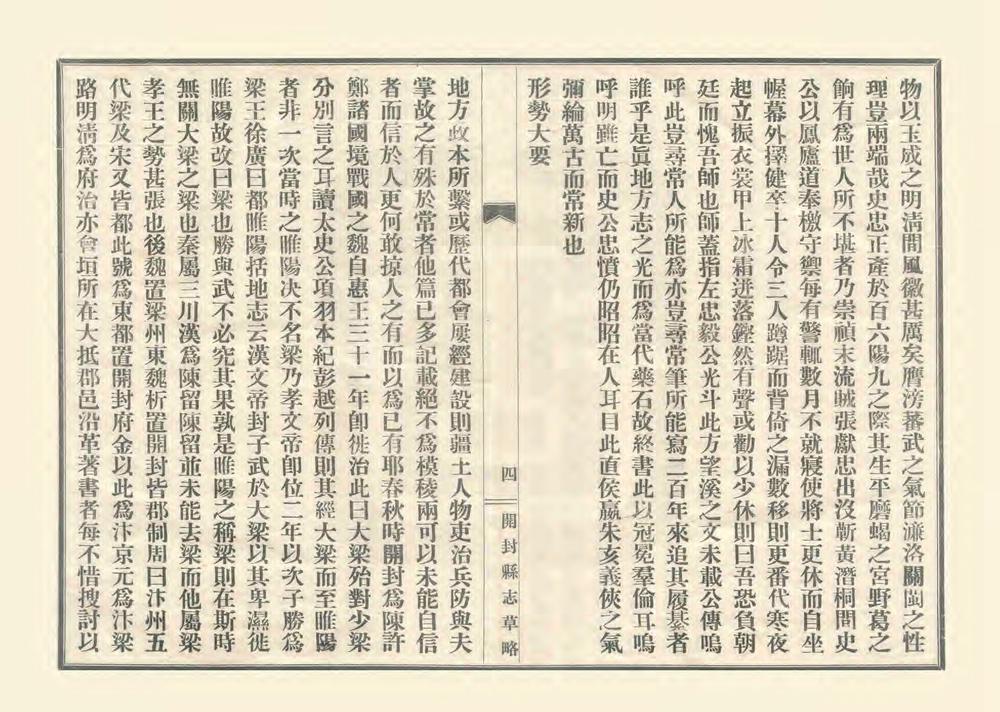 物以玉成之明清間風徽甚厲矣膺滂蕃武之氣節濂洛關閩之性
理豈兩端哉史忠正產於百六陽九之際其生平磨蝎之宮野葛之
餉有為世人所不堪者乃崇禎末流賊張獻忠出沒蘄黃潛桐間史
公以鳳廬道奉檄守禦每有警輒數月不就寢使將士更休而自坐
幄幕外擇健卒十人令三人蹲踞而背倚之漏數移則更番代寒夜
起立振衣裳甲上冰霜迸落鏗然有聲或勸以少休則曰吾恐負朝
廷而愧吾師也師蓋指左忠毅公光斗此方望溪之文未載公傳嗚
呼此豈尋常人所能為亦豈尋常筆所能寫二百年來追其履綦者
誰乎是真地方志之光而為當代藥石故終書此以冠冕羣倫耳嗚
呼明雖亡而史公忠憤仍昭昭在人耳目此直侯嬴朱亥義俠之氣
彌綸萬古而常新也
形勢大要
四
開封縣志草略
地方政本所繫或歷代都會屢經建設則疆土人物吏治兵防與夫
掌故之有殊於常者他篇已多記載絕不為模稜兩可以未能自信
者而信於人更何敢掠人之有而以為已有耶春秋時開封為陳許
鄭諸國境戰國之魏自惠王三十一年卽徙治此曰大梁殆對少梁
分別言之耳讀太史公項羽本紀彭越列傳則其經大梁而至睢陽
者非一次當時之睢陽決不名梁乃孝文帝卽位二年以次子勝為
梁王徐廣曰都睢陽括地志云漢文帝封子武於大梁以其卑濕徙
睢陽故改曰梁也勝與武不必究其果孰是睢陽之稱梁則在斯時
無關大梁之梁也秦屬三川漢為陳留陳留並未能去梁而他屬梁
孝王之勢甚張也後魏置梁州東魏析置開封皆郡制周曰汴州五
代梁及宋又皆都此號為東都置開封府金以此為汴京元為汴梁
路明清為府治亦會垣所在大抵郡邑沿革著書者每不惜搜討以